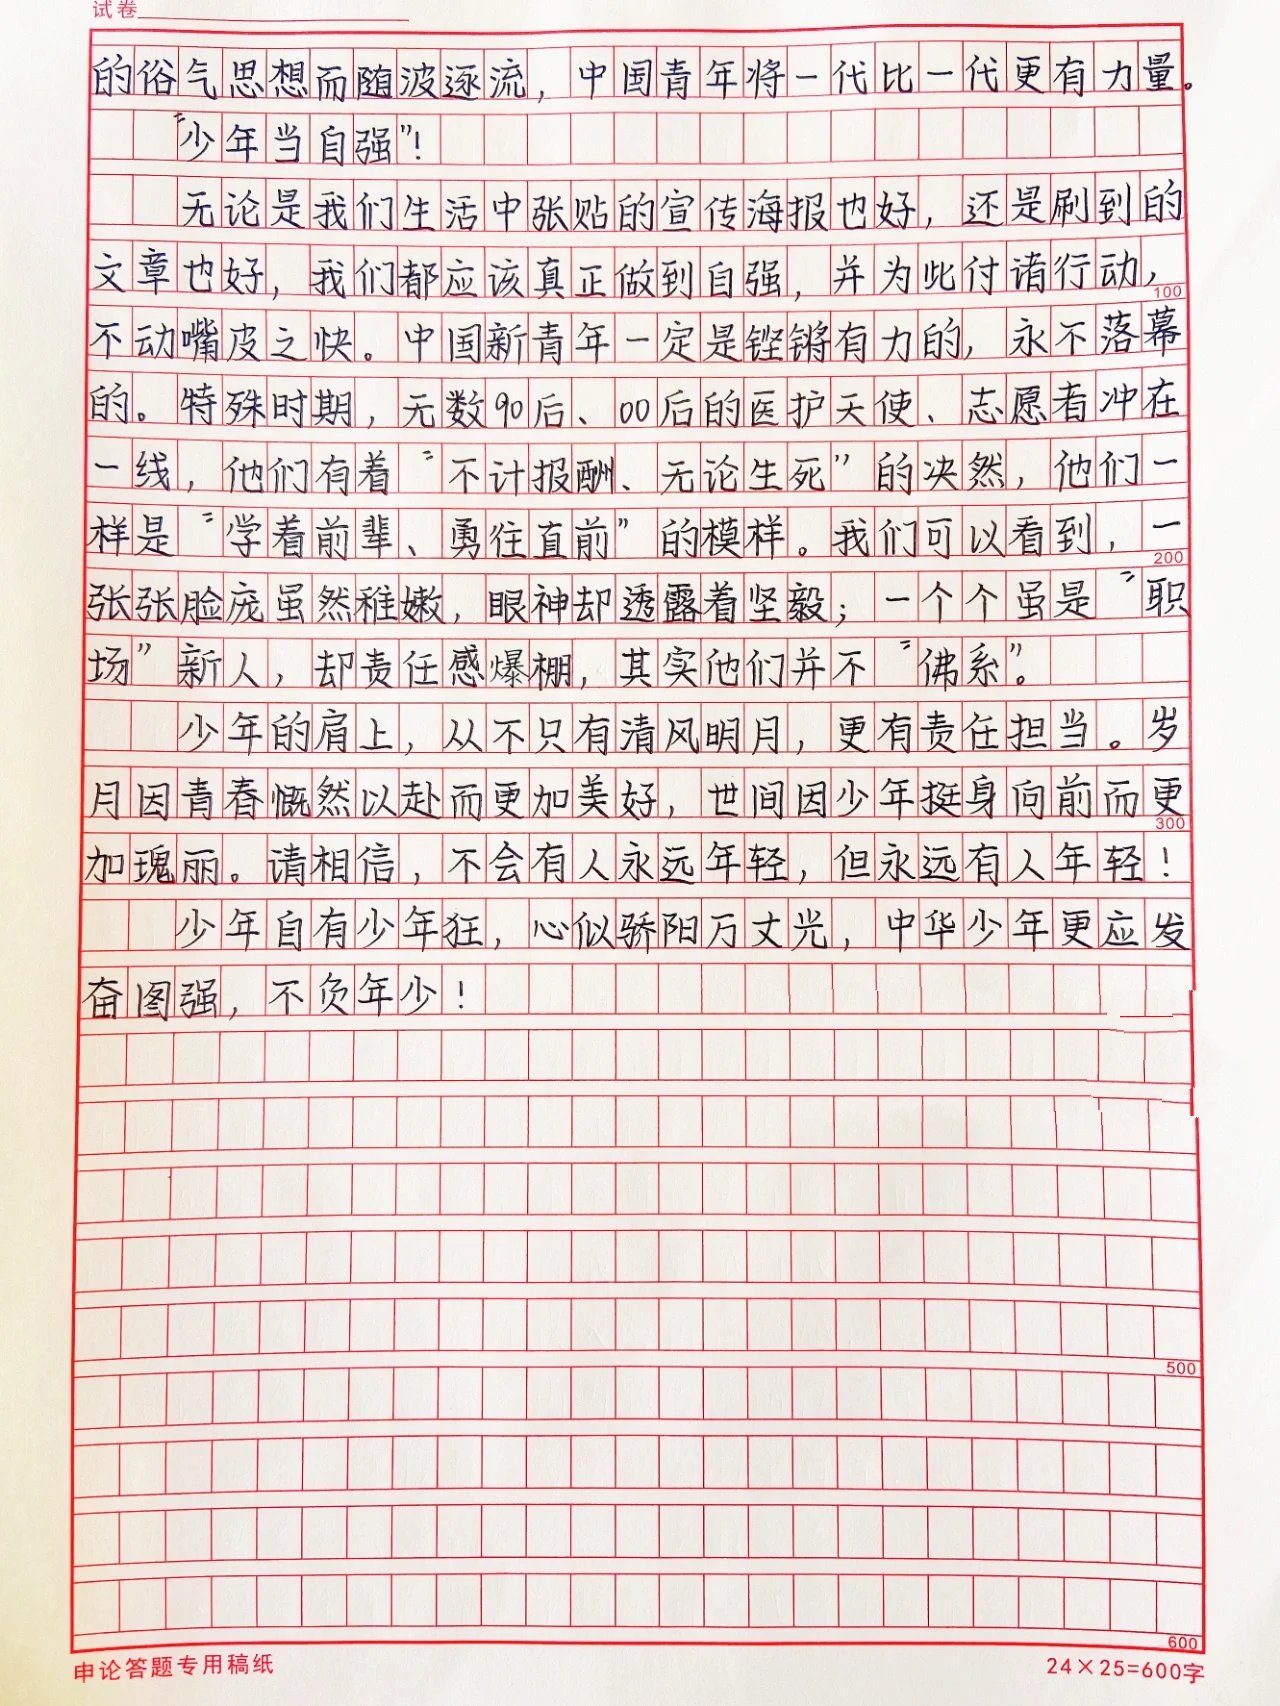 试卷
的俗气思想而随波逐流，中国青年将一代比一代更有力量。
“少年当自强”！
无论是我们生活中张贴的宣传海报也好，还是刷到的
文章也好，我们都应该真正做到自强，并为此付诸行动，
100
不动嘴皮之快。中国新青年一定是铿锵有力的，永不落幕
的。特殊时期，无数90后、00后的医护天使、志愿者冲在
一线，他们有着“不计报酬、无论生死”的决然，他们一
样是“学着前辈、勇往直前”的模样。我们可以看到，一
200
张张脸庞虽然稚嫩，眼神却透露着坚毅；一个个虽是“职
场”新人，却责任感爆棚，其实他们并不“佛系”。
少年的肩上，从不只有清风明月，更有责任担当。岁
月因青春慨然以赴而更加美好，世间因少年挺身向前而更
300
加瑰丽。请相信，不会有人永远年轻，但永远有人年轻！
少年自有少年狂，心似骄阳万丈光，中华少年更应发
奋图强，不负年少！
500
600
申论答题专用稿纸
24×25=600字